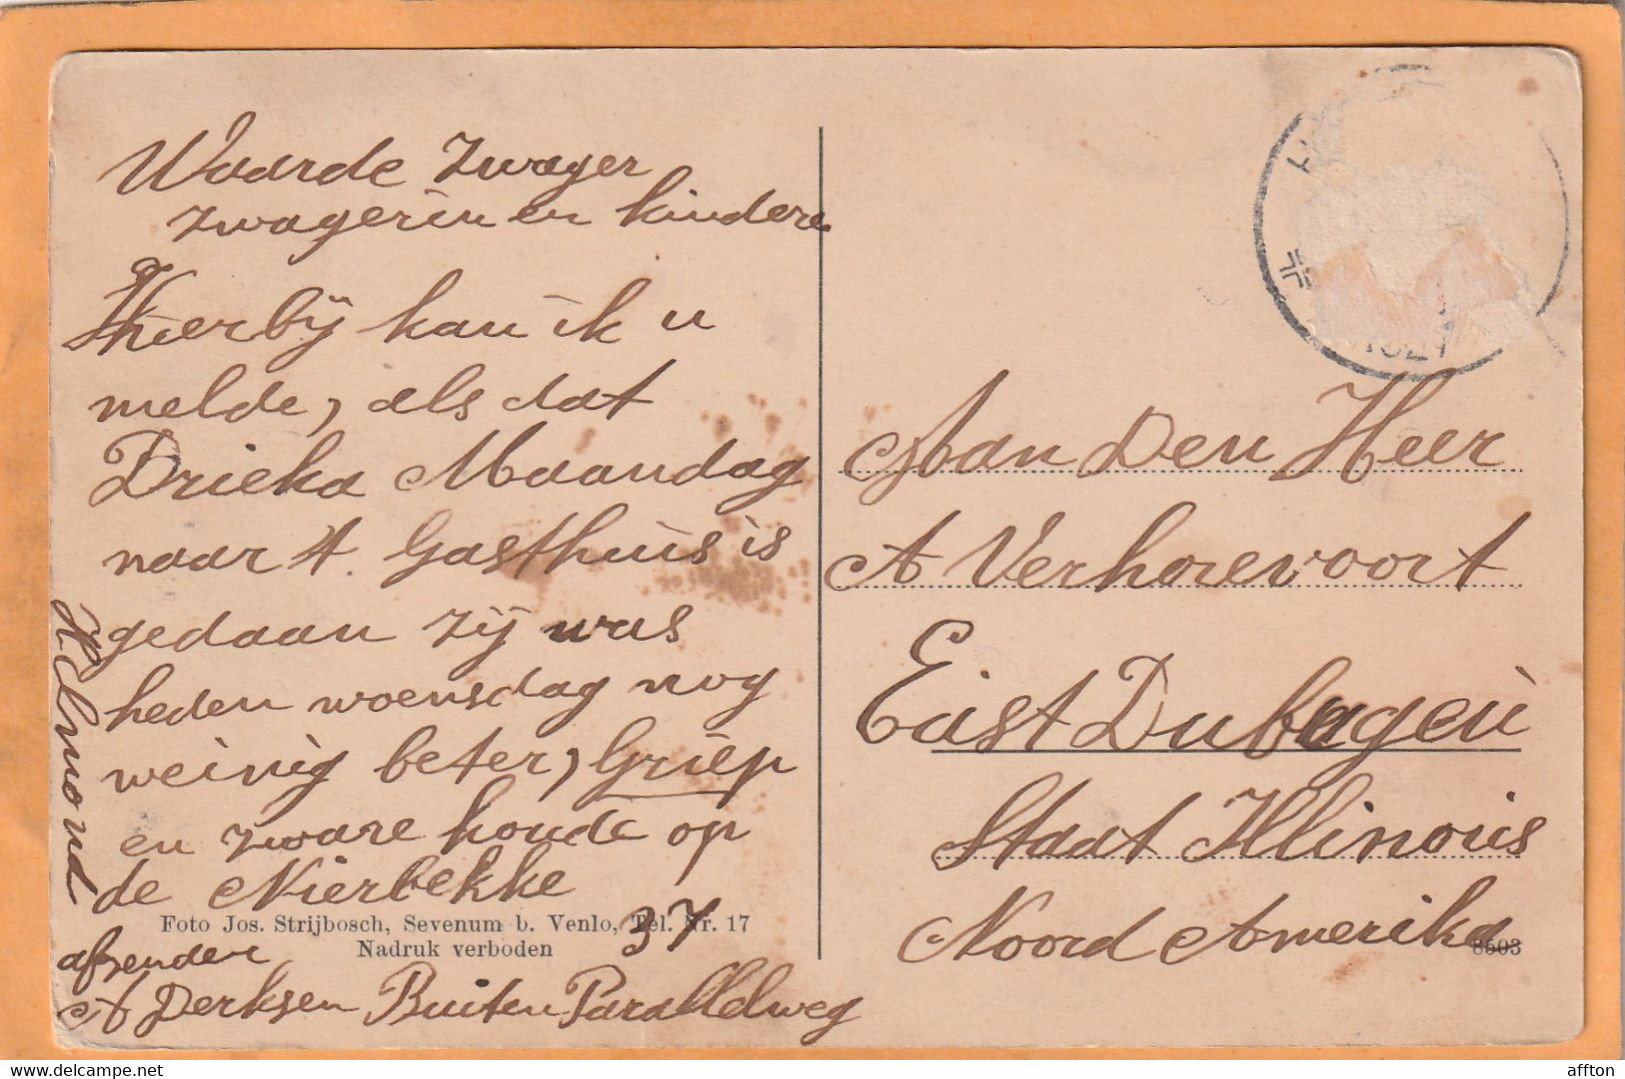 Waarde Zwager
zwagerin en kindere
Hierbij kan ik u
melde, als dat
Drieka Maandag
naar t Gasthuis is
gedaan zij was
heden woensdag nog
weinig beter, Griep
en zware koude op
de Nierbekke
Foto Jos. Strijbosch, Sevenum b. Venlo, Tel. Nr. 17
Nadruk verboden
afzender 37
A Derksen Buiten Parallelweg
Helmond
Aan Den Heer
A Verhoevoort
East Dubugeu
Staat Illinouis
Noord Amerika
8503
affton